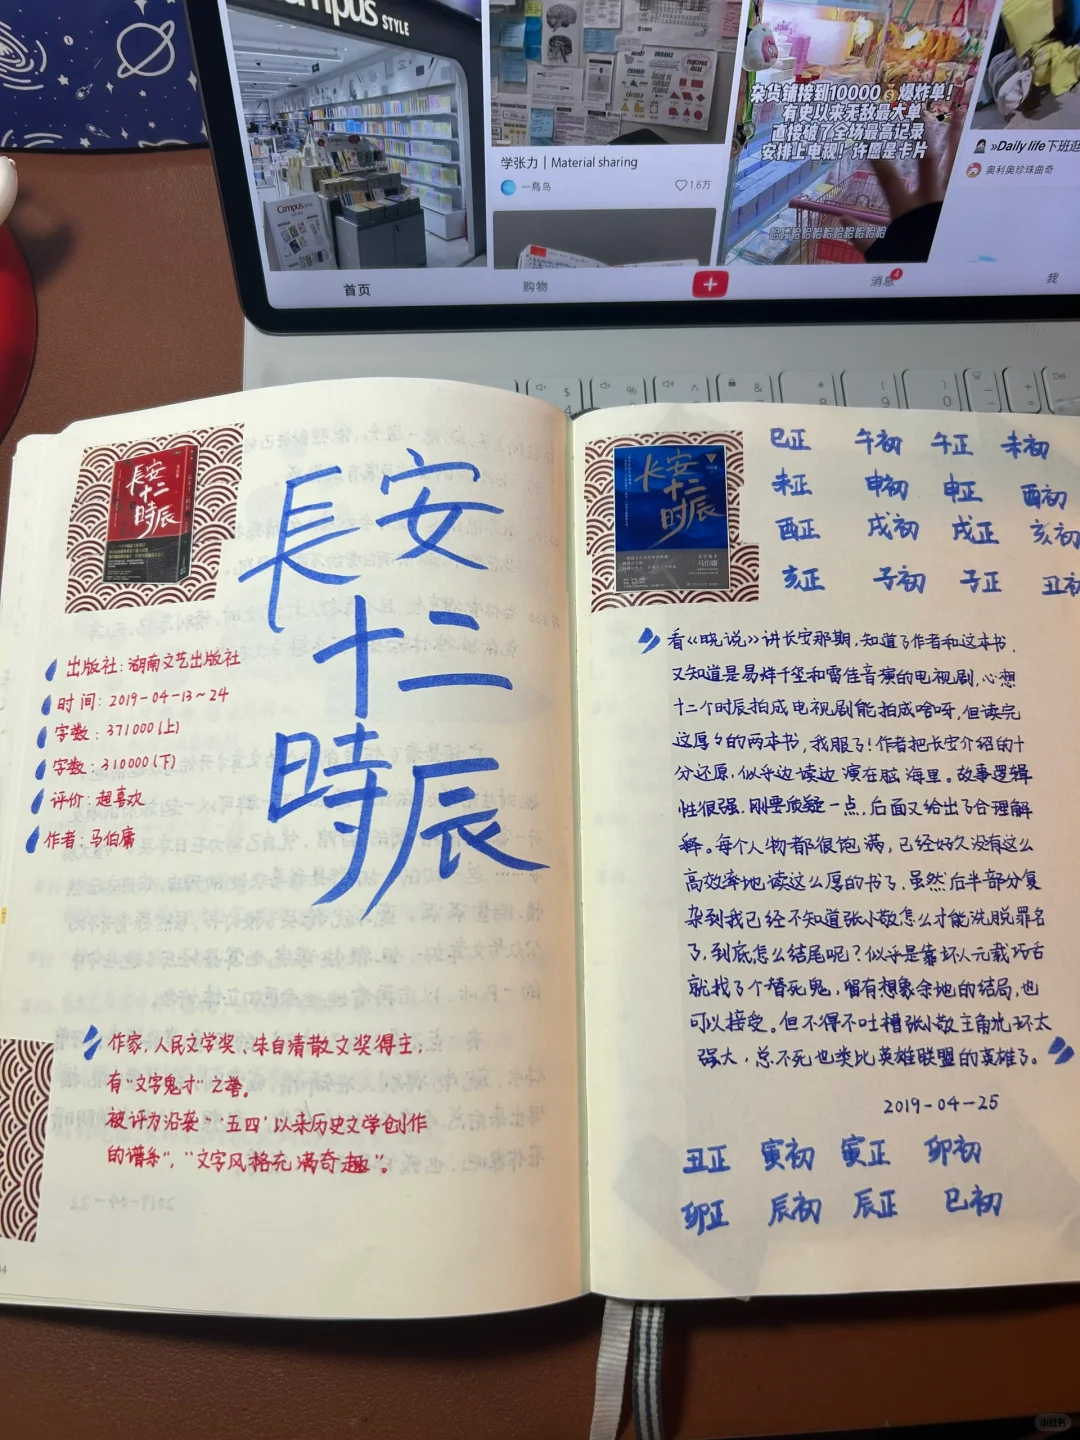 Campus STYLE
Campus
学张力 | Material sharing
一鳥鸟
1.6万
杂货铺接到10000💰爆炸单！
有史以来无敌最大单
直接破了全场最高记录
安排上电视！许愿是卡片
»Daily life下班逛
奥利奥珍珠曲奇
首页
购物
消息
4
我
長安
十二
時辰
長安
十二
時辰
出版社：湖南文艺出版社
时间：2019-04-13~24
字数：371000(上)
字数：310000(下)
评价：超喜欢
作者：马伯庸
作家，人民文学奖、朱自清散文奖得主，
有“文字鬼才”之誉。
被评为沿袭“‘五四’以来历史文学创作
的谱系”，“文字风格充满奇趣”。
长安
十二
时辰
马伯庸
巳正 午初 午正 未初
未正 申初 申正 酉初
酉正 戌初 戌正 亥初
亥正 子初 子正 丑初
看《晓说》讲长安那期，知道了作者和这本书，
又知道是易烊千玺和雷佳音演的电视剧，心想
十二个时辰拍成电视剧能拍成啥呀，但读完
这厚々的两本书，我服了！作者把长安介绍的十
分还原，似乎边读边演在脑海里。故事逻辑
性很强，刚要质疑一点，后面又给出了合理解
释。每个人物都很饱满，已经好久没有这么
高效率地读这么厚的书了，虽然后半部分复
杂到我已经不知道张小敬怎么才能洗脱罪名
了，到底怎么结尾呢？似乎是靠坏人元载巧舌
就找了个替死鬼，留有想象余地的结局，也
可以接受。但不得不吐槽张小敬主角光环太
强大，总不死也类比英雄联盟的英雄了。
2019-04-25
丑正 寅初 寅正 卯初
卯正 辰初 辰正 巳初
小红书